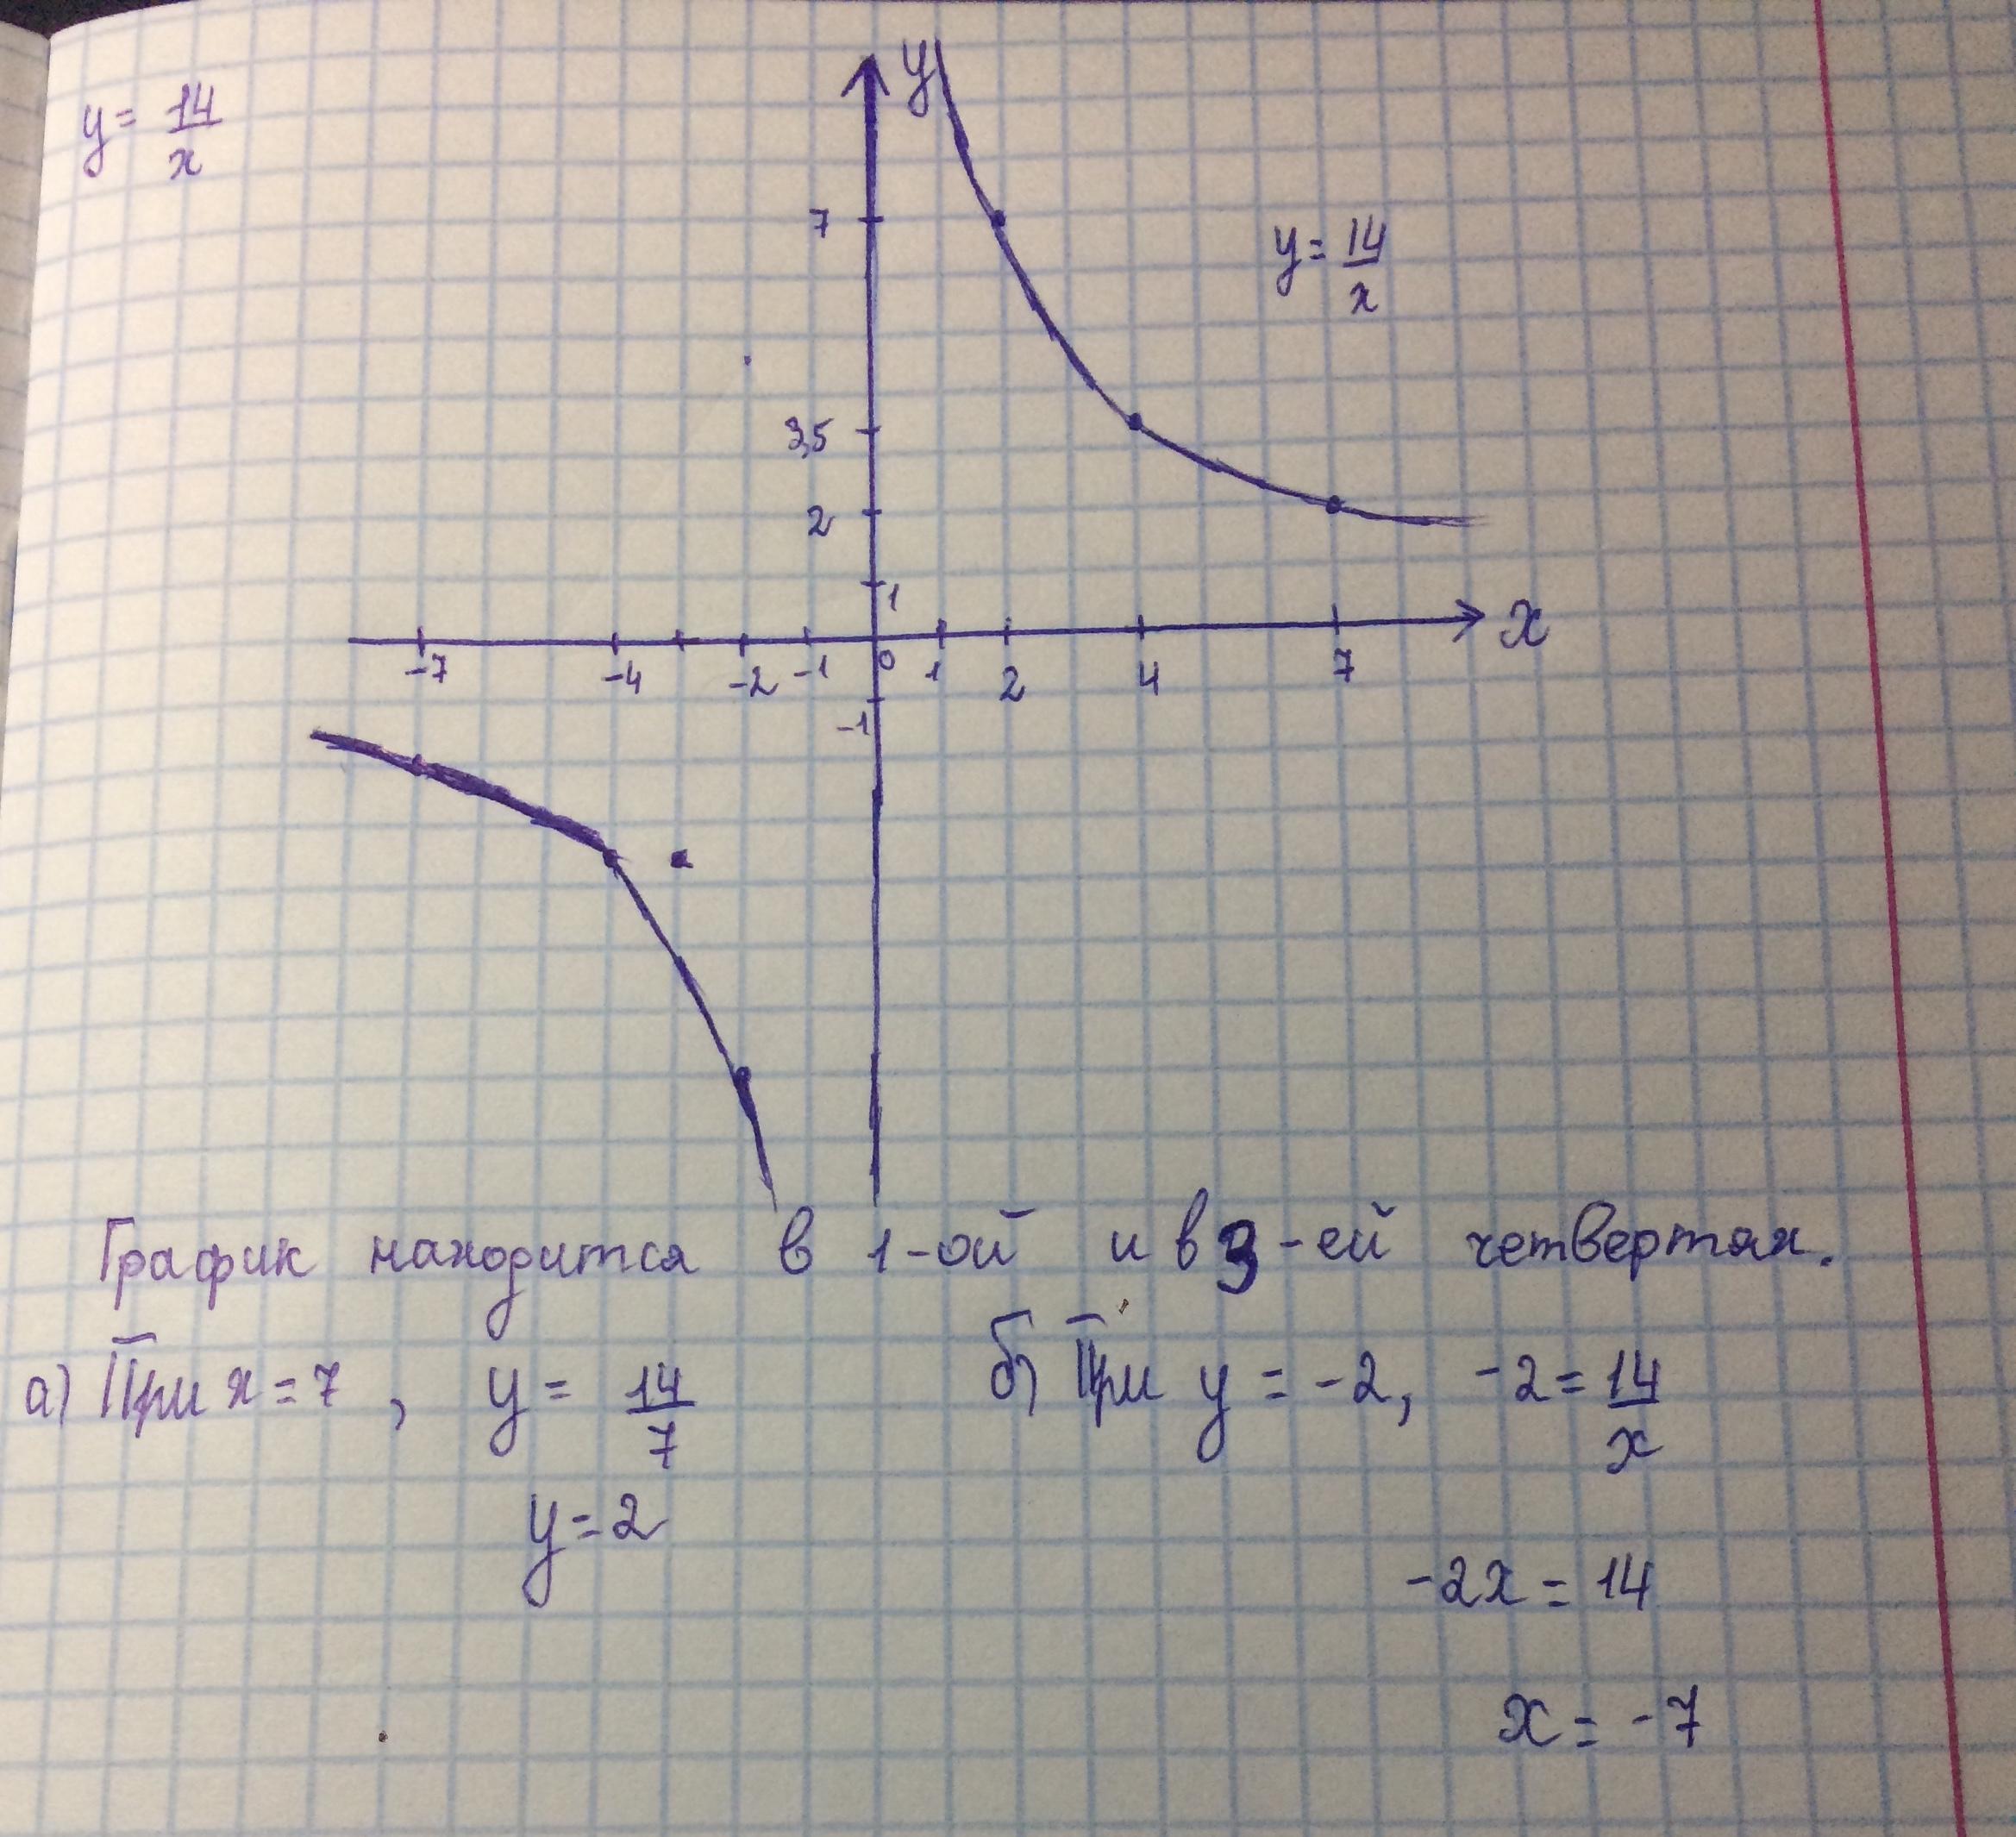 y = 14/x
y
7
y = 14/x
3,5
2
1
x
-7 -4 -2 -1 0 1 2 4 7
-1
График находится в 1-ой и в 3-ей четвертях.
а) При x = 7, y = 14/7 б) При y = -2, -2 = 14/x
y = 2
-2x = 14
x = -7